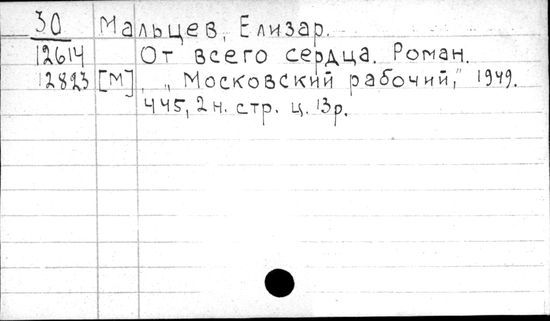 30 Мальцев, Елизар.
12614 От всего сердца. Роман.
12823 [М], „Московский рабочий", 1949.
445, 2 н. стр. ц. 13 р.